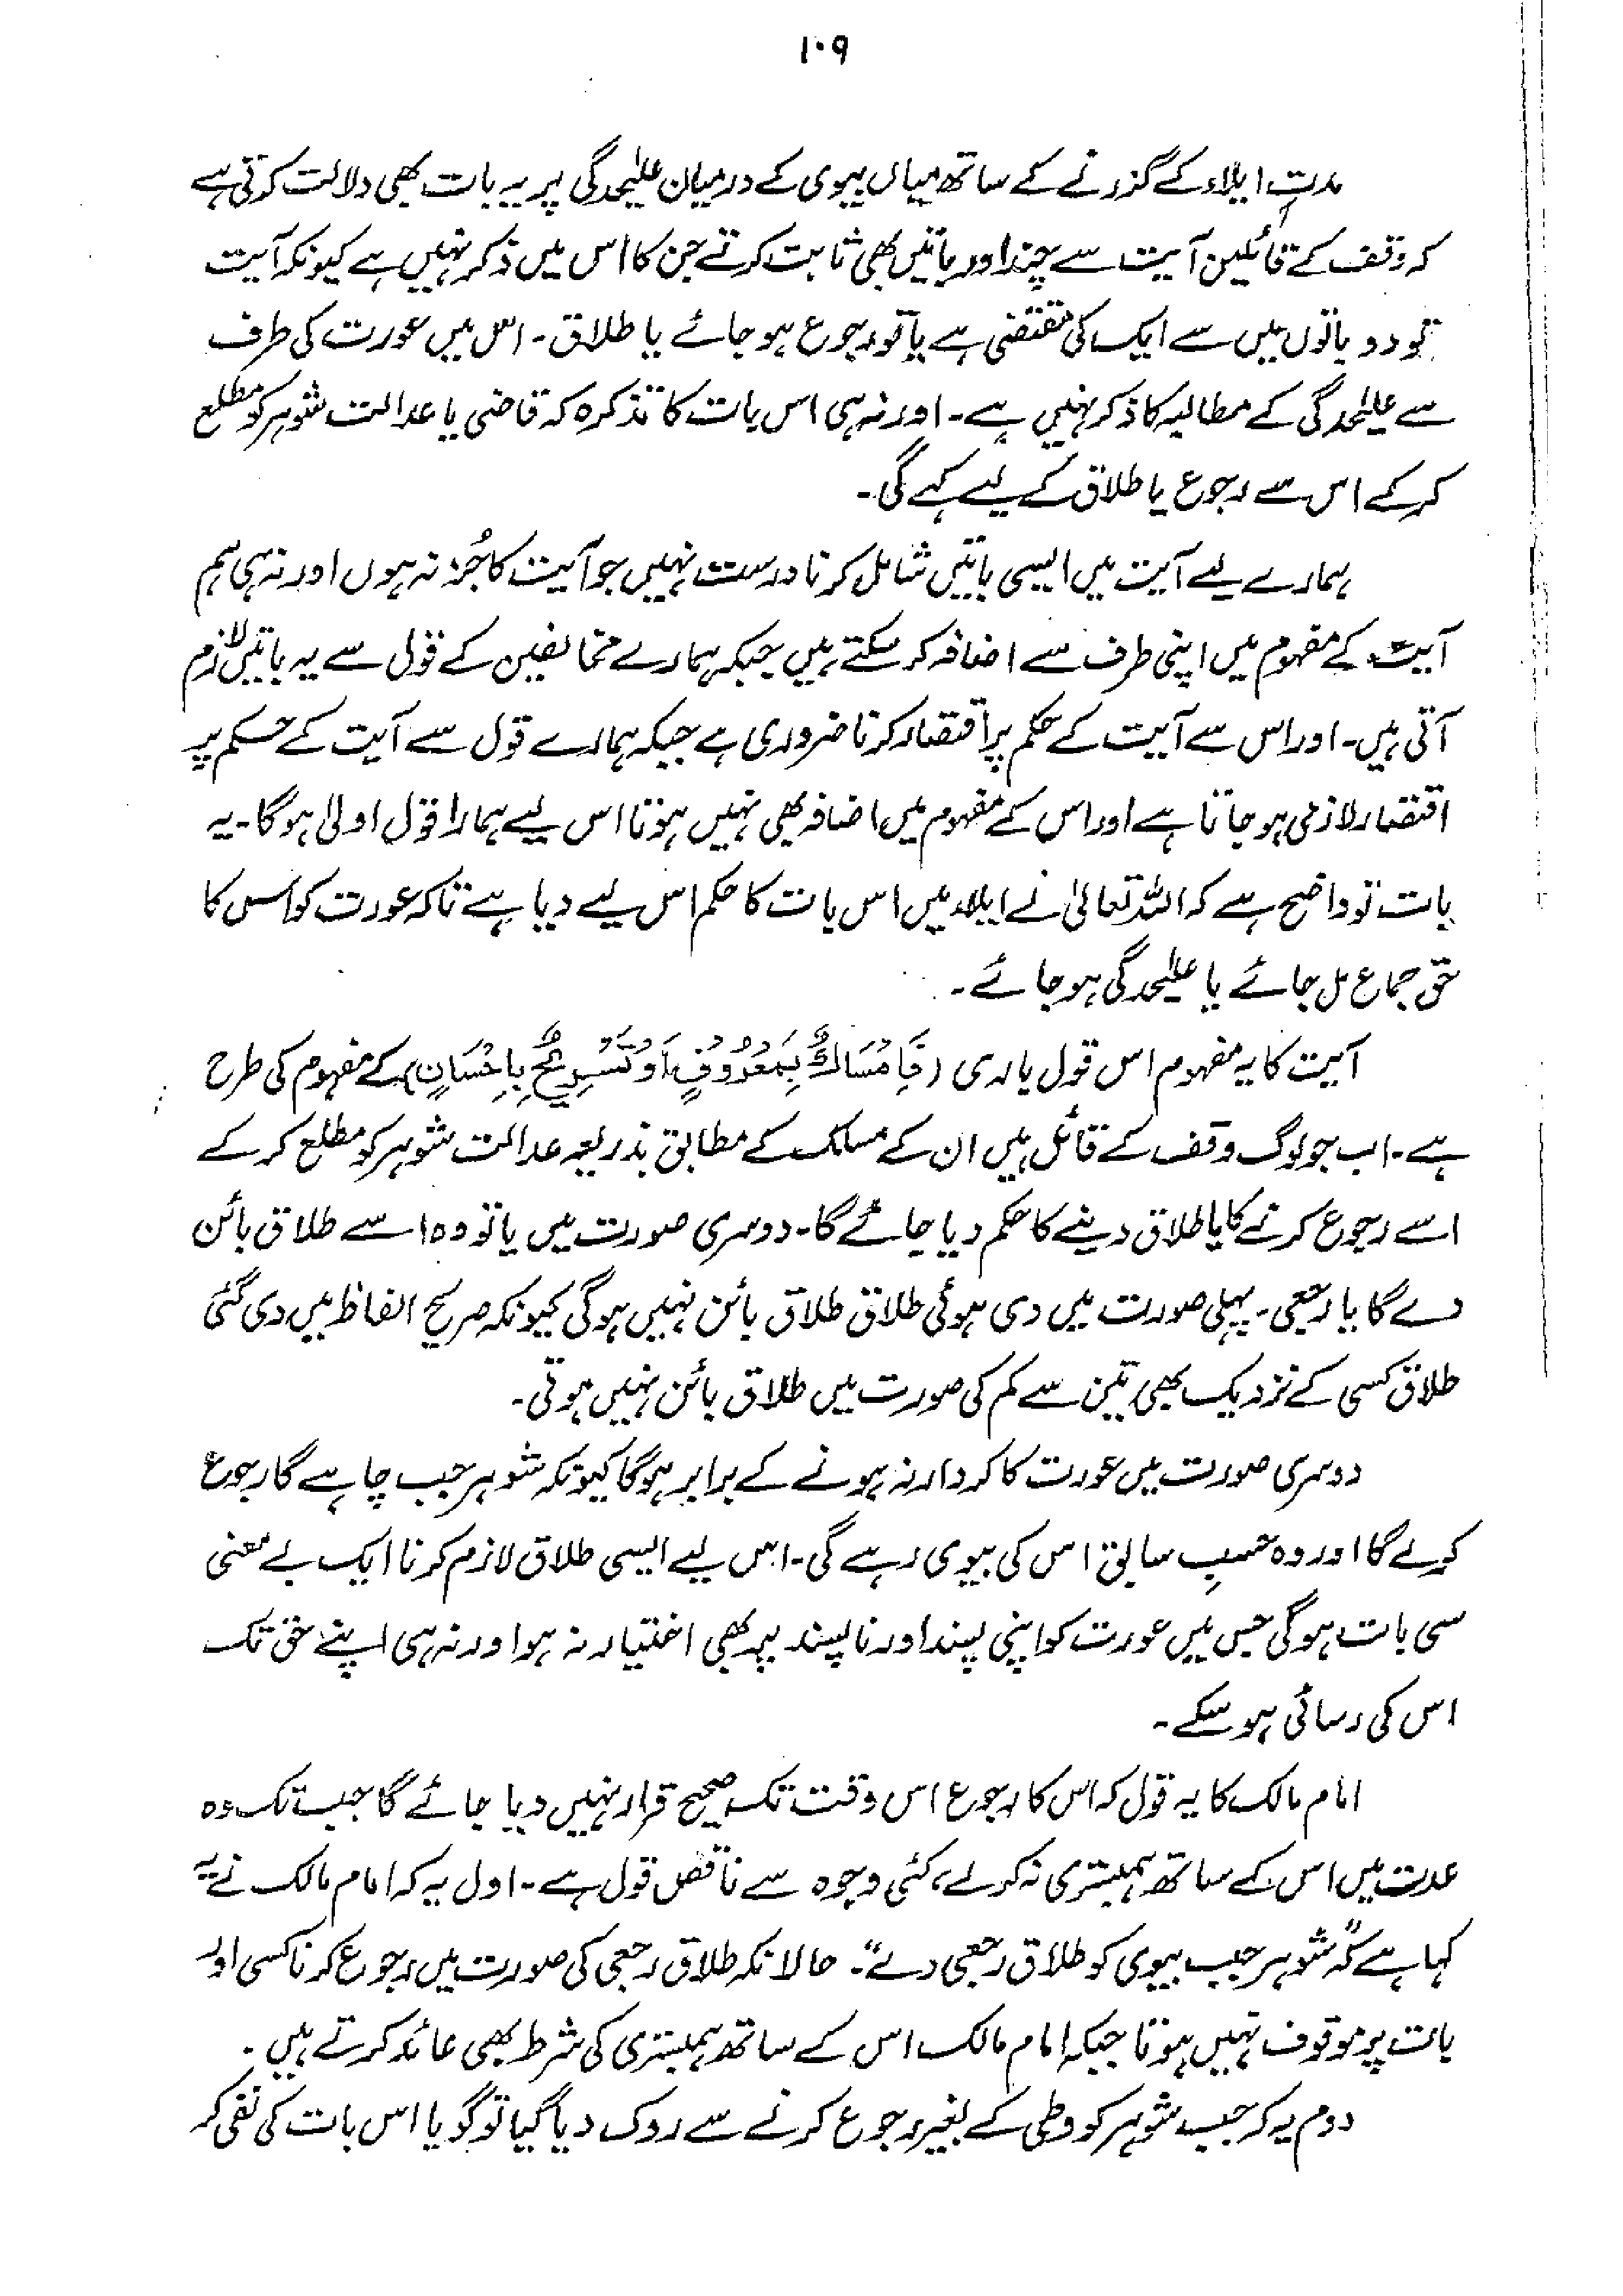 ۱۰۹
مدتِ ایلاء کے گزرنے کے ساتھ میاں بیوی کے درمیان علیٰحدگی پر یہ بات بھی دلالت کرتی ہے
کہ وقف کے قائلین آیت سے چند اور باتیں بھی ثابت کرتے جن کا اس میں ذکر نہیں ہے کیونکہ آیت
تو دو باتوں میں سے ایک کی مقتضی ہے یا تو رجوع ہو جائے یا طلاق۔ اس میں عورت کی طرف
سے علیٰحدگی کے مطالبہ کا ذکر نہیں ہے۔ اور نہ ہی اس بات کا تذکرہ کہ قاضی یا عدالت شوہر کو مطلع
کر کے اس سے رجوع یا طلاق کے لیے کہے گی۔
ہمارے لیے آیت میں ایسی باتیں شامل کرنا درست نہیں جو آیت کا جُز نہ ہوں اور نہ ہی ہم
آیت کے مفہوم میں اپنی طرف سے اضافہ کر سکتے ہیں جبکہ ہمارے مخالفین کے قول سے یہ باتیں لازم
آتی ہیں۔ اور اس سے آیت کے حکم پر اقتصار کرنا ضروری ہے جبکہ ہمارے قول سے آیت کے حکم پر
اقتصار لازمی ہو جاتا ہے اور اس کے مفہوم میں اضافہ بھی نہیں ہوتا اس لیے ہمارا قول اولیٰ ہوگا۔ یہ
بات تو واضح ہے کہ اللہ تعالیٰ نے ایلاء میں اس بات کا حکم اس لیے دیا ہے تاکہ عورت کو اس کا
حق جماع مل جائے یا علیٰحدگی ہو جائے۔
آیت کا یہ مفہوم اس قول باری (فَاِمْسَاكٌ بِمَعْرُوْفٍ اَوْ تَسْرِيْحٌ بِاِحْسَانٍ) کے مفہوم کی طرح
ہے۔ اب جو لوگ وقف کے قائل ہیں ان کے مسلک کے مطابق بذریعہ عدالت شوہر کو مطلع کر کے
اسے رجوع کرنے کا یا طلاق دینے کا حکم دیا جائے گا۔ دوسری صورت میں یا تو وہ اسے طلاق بائن
دے گا یا رجعی۔ پہلی صورت میں دی ہوئی طلاق طلاق بائن نہیں ہوگی کیونکہ صریح الفاظ میں دی گئی
طلاق کسی کے نزدیک بھی تین سے کم کی صورت میں طلاق بائن نہیں ہوتی۔
دوسری صورت میں عورت کا کردار نہ ہونے کے برابر ہوگا کیونکہ شوہر جب چاہے گا رجوع
کرلے گا اور وہ حسبِ سابق اس کی بیوی رہے گی۔ اس لیے ایسی طلاق لازم کرنا ایک بے معنی
سی بات ہوگی جس میں عورت کو اپنی پسند اور ناپسند پر بھی اختیار نہ ہو اور نہ ہی اپنے حق تک
اس کی رسائی ہو سکے۔
امام مالک کا یہ قول کہ اس کا رجوع اس وقت تک صحیح قرار نہیں دیا جائے گا جب تک وہ
عدت میں اس کے ساتھ ہمبستری نہ کر لے، کئی وجوہ سے ناقص قول ہے۔ اول یہ کہ امام مالک نے یہ
کہا ہے کہ "شوہر جب بیوی کو طلاق رجعی دے"۔ حالانکہ طلاق رجعی کی صورت میں رجوع کرنا کسی اور
بات پر موقوف نہیں ہوتا جبکہ امام مالک اس کے ساتھ ہمبستری کی شرط بھی عائد کرتے ہیں۔
دوم یہ کہ جب شوہر کو وطی کے بغیر رجوع کرنے سے روک دیا گیا تو گویا اس بات کی نفی کر